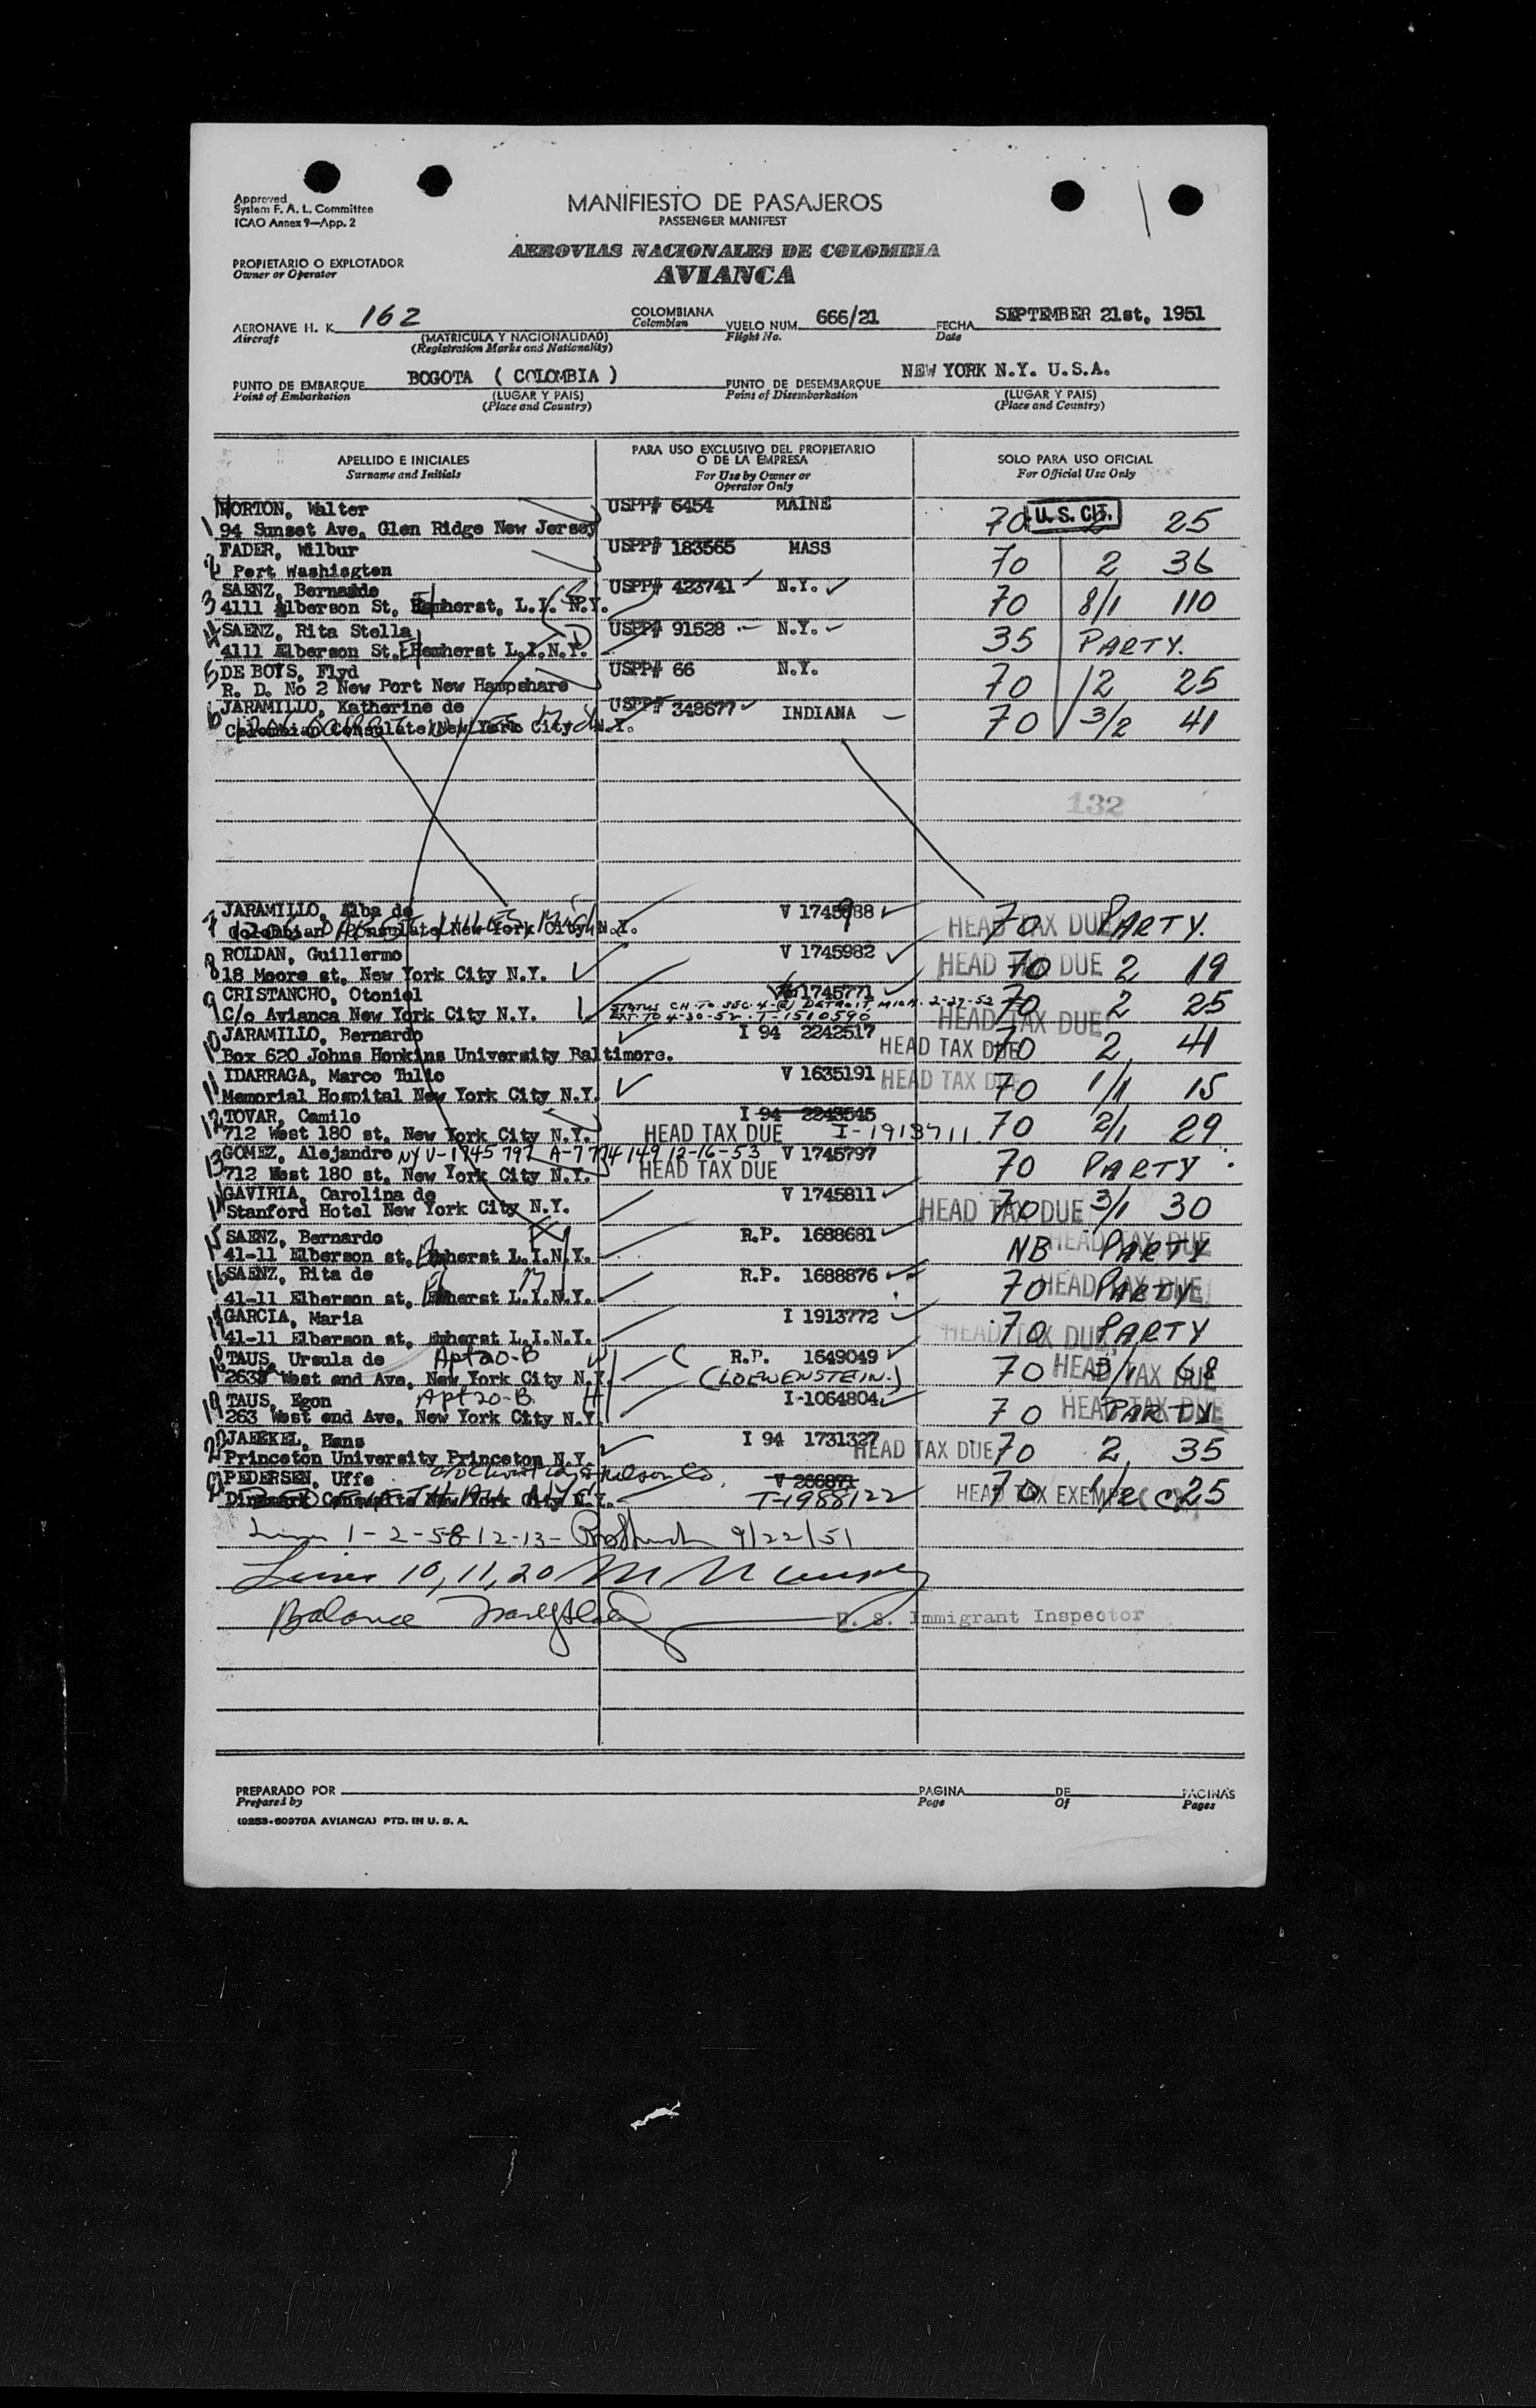 Approved
System F. A. L. Committee
ICAO Annex 9—App. 2
MANIFIESTO DE PASAJEROS
PASSENGER MANIFEST
AEROVIAS NACIONALES DE COLOMBIA
AVIANCA
PROPIETARIO O EXPLOTADOR
Owner or Operator
AERONAVE H. K. 162 COLOMBIANA VUELO NUM. 666/21 FECHA SEPTEMBER 21st, 1951
Aircraft (MATRICULA Y NACIONALIDAD) Colombian Flight No. Date
(Registration Marks and Nationality)
PUNTO DE EMBARQUE BOGOTA ( COLOMBIA ) PUNTO DE DESEMBARQUE NEW YORK N.Y. U.S.A.
Point of Embarkation (LUGAR Y PAIS) Point of Disembarkation (LUGAR Y PAIS)
(Place and Country) (Place and Country)
APELLIDO E INICIALES PARA USO EXCLUSIVO DEL PROPIETARIO O DE LA EMPRESA SOLO PARA USO OFICIAL
Surname and Initials For Use by Owner or Operator Only For Official Use Only
1 HORTON, Walter USPP# 6454 MAINE 70 U. S. CIT. 25
94 Sunset Ave. Glen Ridge New Jersey
2 FADER, Wilbur USPP# 183565 MASS 70 2 36
Port Washisgton
3 SAENZ, USPP# 423741 N.Y. 70 8/1 110
4111 Alberson St, L.I. N.Y.
4 SAENZ, Rita Stella USPP# 91528 N.Y. 35 PARTY.
4111 Alberson St. L.I.N.Y.
5 DE BOYS, Flyd USPP# 66 N.Y. 70 /2 25
R. D. No 2 New Port New Hampshare
6 JARAMILLO, Katherine de USPP# 348677 INDIANA 70 3/2 41
Colombian Consulate New York City N.Y.
132
7 JARAMILLO, Alba de V 1745988 HEAD TAX DUE 70 PARTY.
Colombian Consulate New York City N.Y.
8 ROLDAN, Guillermo V 1745982 HEAD TAX DUE 70 2 19
18 Moore st. New York City N.Y.
9 CRISTANCHO, Otoniel 1745771 70 2 25
C/o Avianca New York City N.Y. STATUS CH. TO SEC. 4-(E) DETROIT, MICH. 2-27-52 HEAD TAX DUE
EXT. TO 4-30-52. T-1510590
10 JARAMILLO, Bernardo I 94 2242517 HEAD TAX DUE 70 2 41
Box 620 Johns Hopkins University Baltimore.
11 IDARRAGA, Marco Tulio V 1635191 HEAD TAX DUE 70 1/1 15
Memorial Hospital New York City N.Y.
12 TOVAR, Camilo I 94 2243545 70 2/1 29
712 West 180 st. New York City N.Y. HEAD TAX DUE I-1913711
13 GOMEZ, Alejandro NY V-1745797 A-7774149 12-16-53 V 1745797 70 PARTY
712 West 180 st. New York City N.Y. HEAD TAX DUE
14 GAVIRIA, Carolina de V 1745811 HEAD TAX DUE 70 3/1 30
Stanford Hotel New York City N.Y.
15 SAENZ, Bernardo R.P. 1688681 NB HEAD TAX DUE PARTY
41-11 Elberson st. L.I.N.Y.
16 SAENZ, Rita de R.P. 1688876 70 HEAD TAX DUE PARTY
41-11 Elberson st. L.I.N.Y.
17 GARCIA, Maria I 1913772 HEAD TAX DUE 70 PARTY
41-11 Elberson st. Emherst L.I.N.Y.
18 TAUS, Ursula de Apt 20-B R.P. 1649049 70 HEAD TAX DUE 3/1 68
263 West end Ave. New York City N.Y. (LOEWENSTEIN.)
19 TAUS, Egon Apt 20-B. I-1064804 70 HEAD TAX DUE PARTY
263 West end Ave. New York City N.Y.
20 JAEEKEL, Hans I 94 1731327 HEAD TAX DUE 70 2 35
Princeton University Princeton N.Y.
21 PEDERSEN, Uffe V 266871 70 HEAD TAX EXEMPT 1/2 25
New York City N.Y. T-1988122
Lines 1-2-5-8-12-13- 9/22/51
Lines 10, 11, 20
Balance
U. S. Immigrant Inspector
PREPARADO POR PAGINA DE PAGINAS
Prepared by Page Of Pages
(0253-60970A AVIANCA) PTD. IN U. S. A.